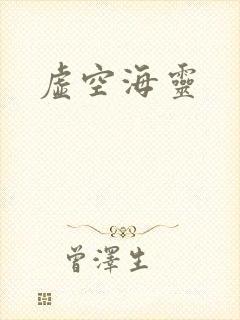 虛空海靈
曾澤生